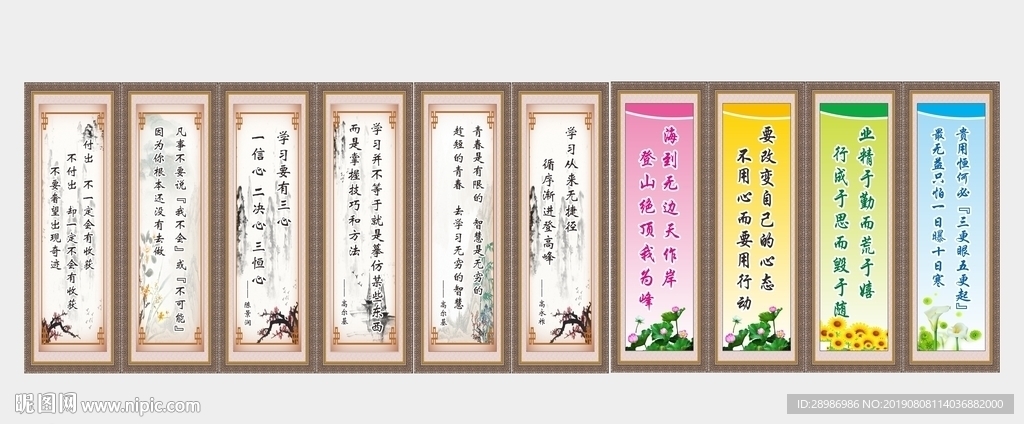 付出 不一定会有收获
不付出 却一定不会有收获
不要奢望出现奇迹
凡事不要说『我不会』或『不可能』
因为你根本还没有去做
学习要有三心
一信心 二决心 三恒心
——陈景润
学习并不等于就是摹仿某些东西
而是掌握技巧和方法
——高尔基
青春是有限的 智慧是无穷的
趁短的青春 去学习无穷的智慧
——高尔基
学习从来无捷径
循序渐进登高峰
——高永祚
海到无边天作岸
登山绝顶我为峰
要改变自己的心态
不用心而要用行动
业精于勤而荒于嬉
行成于思而毁于随
贵用恒何必『三更眠五更起』
最无益只怕一日曝十日寒
昵图网 www.nipic.com
ID:28986986 NO:20190808114036882000